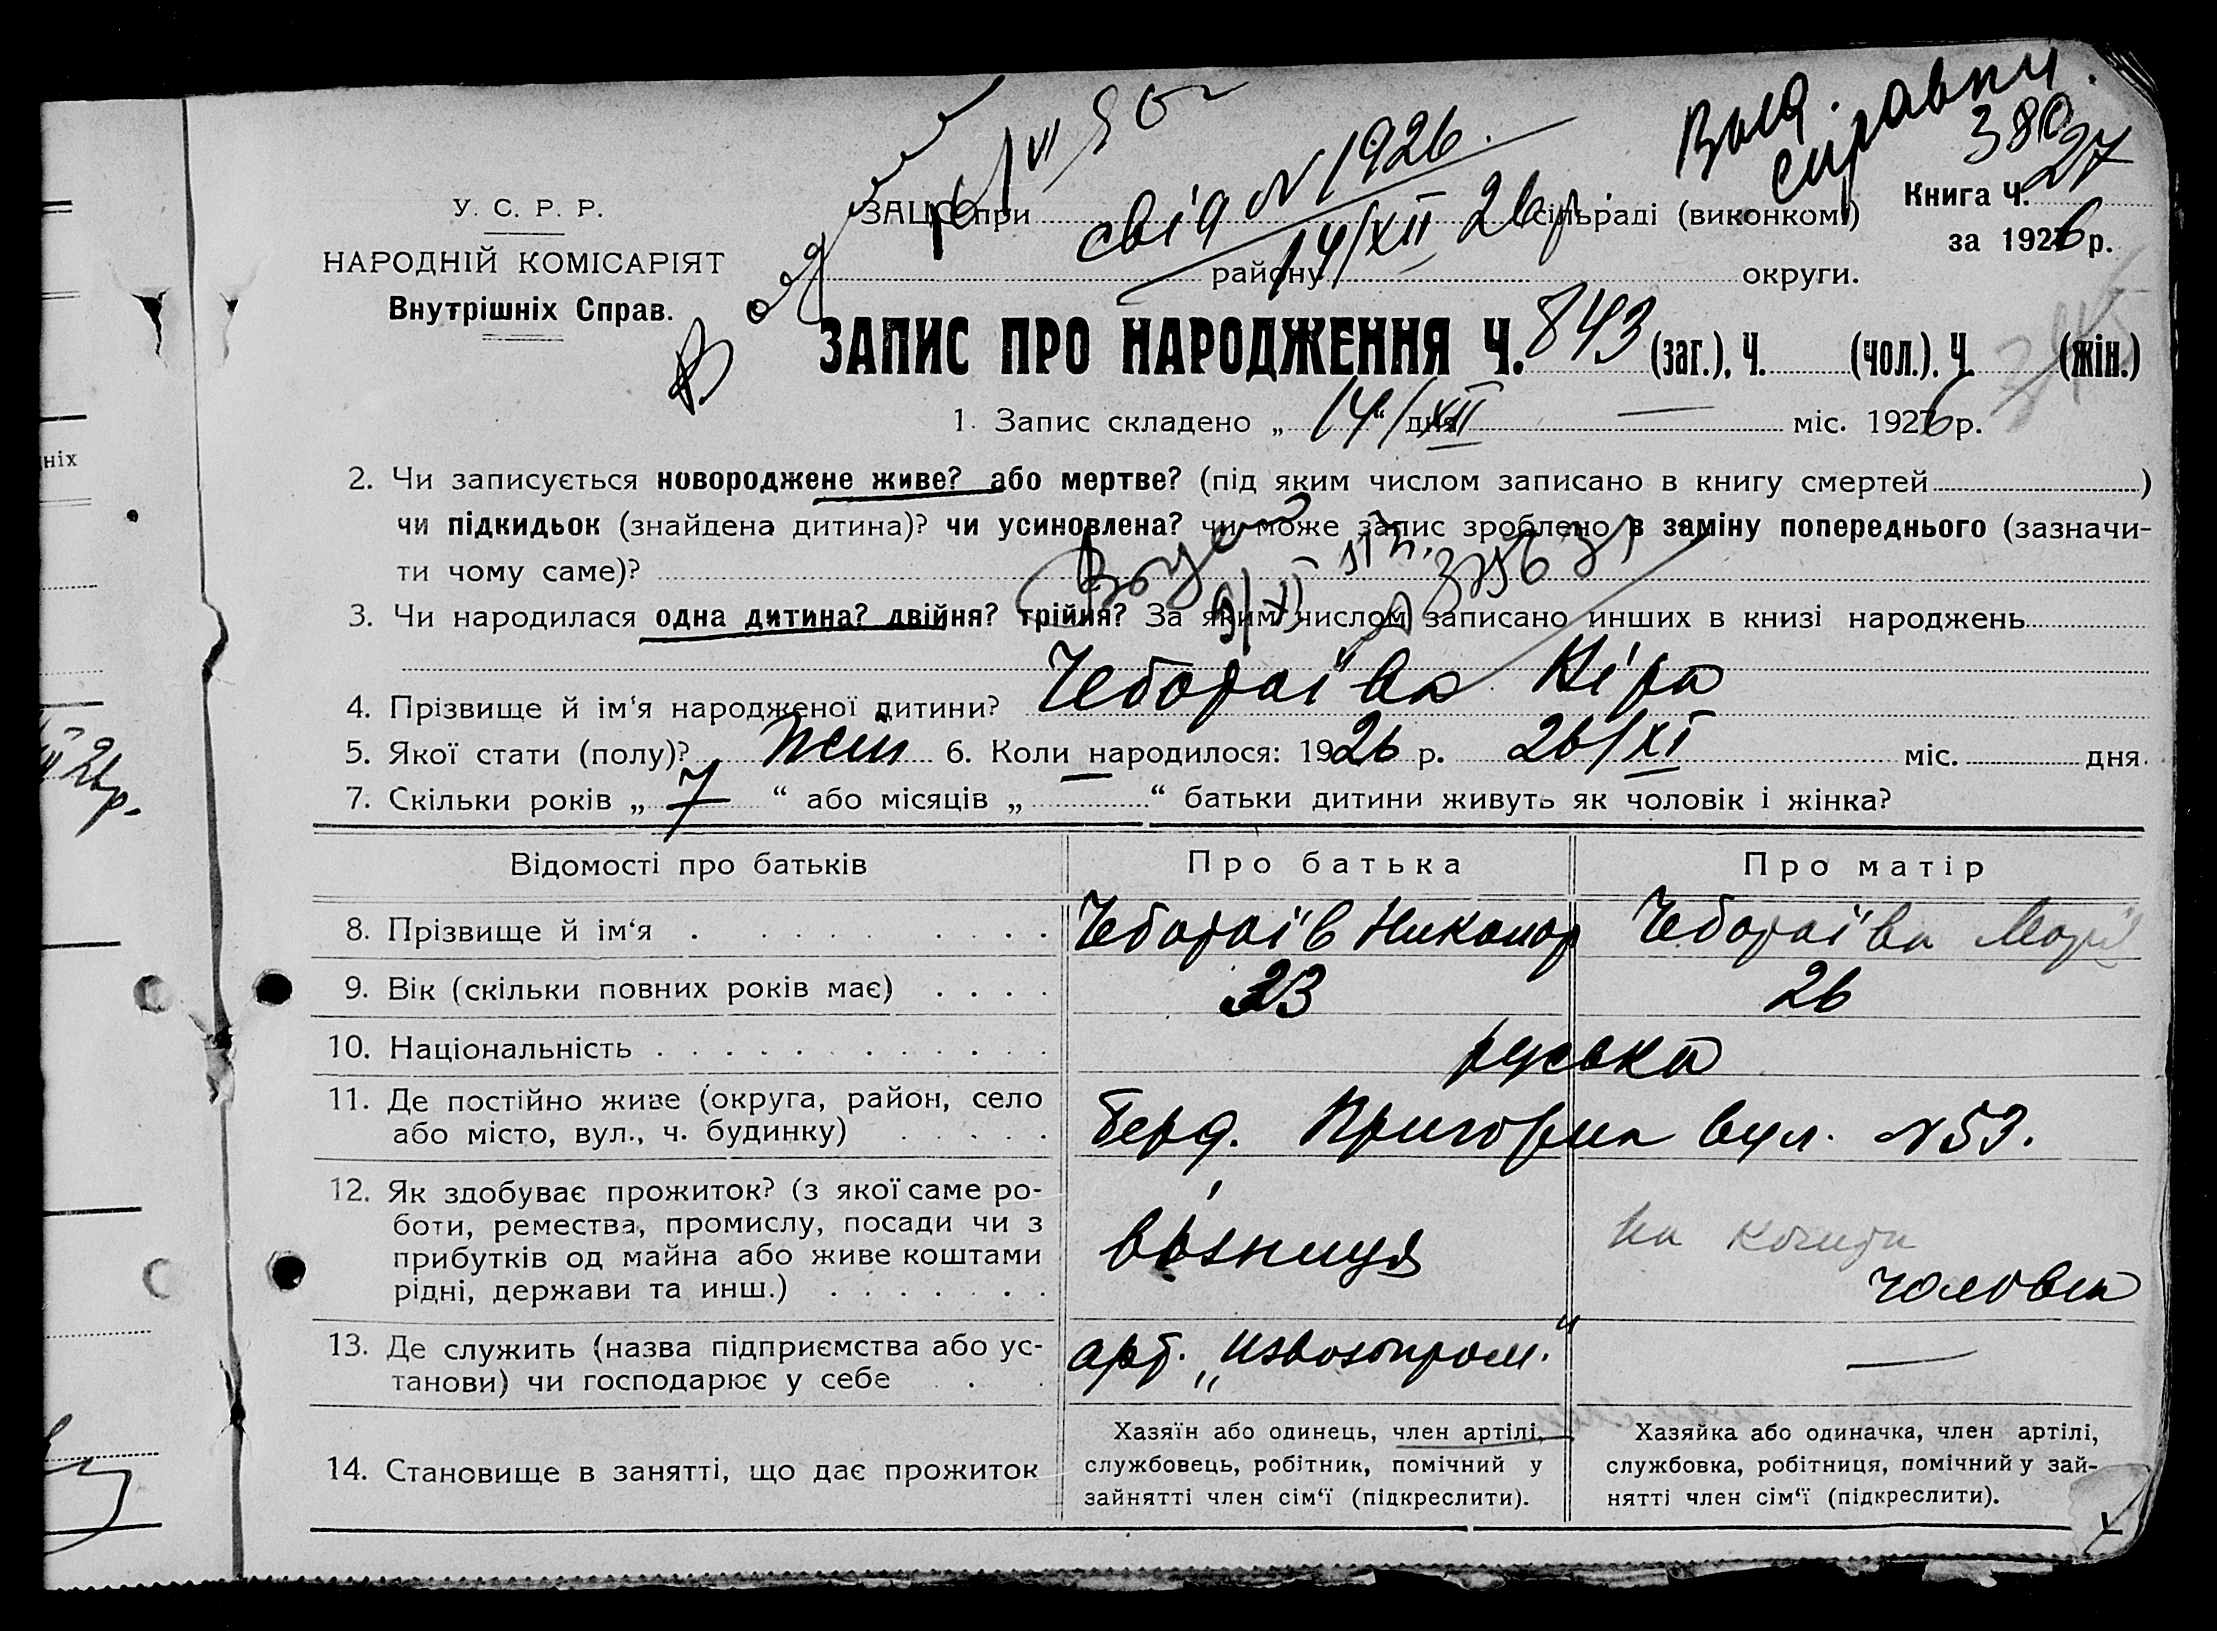 Вид. справки.
380
У. С. Р. Р.
НАРОДНІЙ КОМІСАРІЯТ
Внутрішніх Справ.
ЗАЦС при свід N 1926. сільраді (виконкомі)
14/XII 26 р.
району округи.
Книга Ч. 27
за 1926 р.
ЗАПИС ПРО НАРОДЖЕННЯ Ч. 843 (заг.), Ч. (чол.). Ч. (жін.)
1. Запис складено „ 14 “ дня XII — міс. 1926 р.
2. Чи записується новороджене живе? або мертве? (під яким числом записано в книгу смертей )
чи підкидьок (знайдена дитина)? чи усиновлена? чи може запис зроблено в заміну попереднього (зазначи-
ти чому саме)?
3. Чи народилася одна дитина? двійня? трійня? За яким числом записано инших в книзі народжень
4. Прізвище й ім‘я народженої дитини? Чеботаї ва Кіра
5. Якої стати (полу)? жін 6. Коли народилося: 1926 р. 26/XI міс. дня.
7. Скільки років „ 7 “ або місяців „ “ батьки дитини живуть як чоловік і жінка?
Відомості про батьків Про батька Про матір
8. Прізвище й ім‘я Чеботаїв Никанор Чеботаїва Марія
9. Вік (скільки повних років має) 33 26
10. Національність руська
11. Де постійно живе (округа, район, село
або місто, вул., ч. будинку) Берд. вул. N 53.
12. Як здобуває прожиток? (з якої саме ро-
боти, ремества, промислу, посади чи з
прибутків од майна або живе коштами
рідні, держави та инш.) візниця на кошти
чоловіка
13. Де служить (назва підприємства або ус-
танови) чи господарює у себе арт. „Извозопром.“ —
14. Становище в занятті, що дає прожиток
Хазяїн або одинець, член артілі,
службовець, робітник, помічний у
зайнятті член сім‘ї (підкреслити).
Хазяйка або одиначка, член артілі,
службовка, робітниця, помічний у зай-
нятті член сім‘ї (підкреслити).